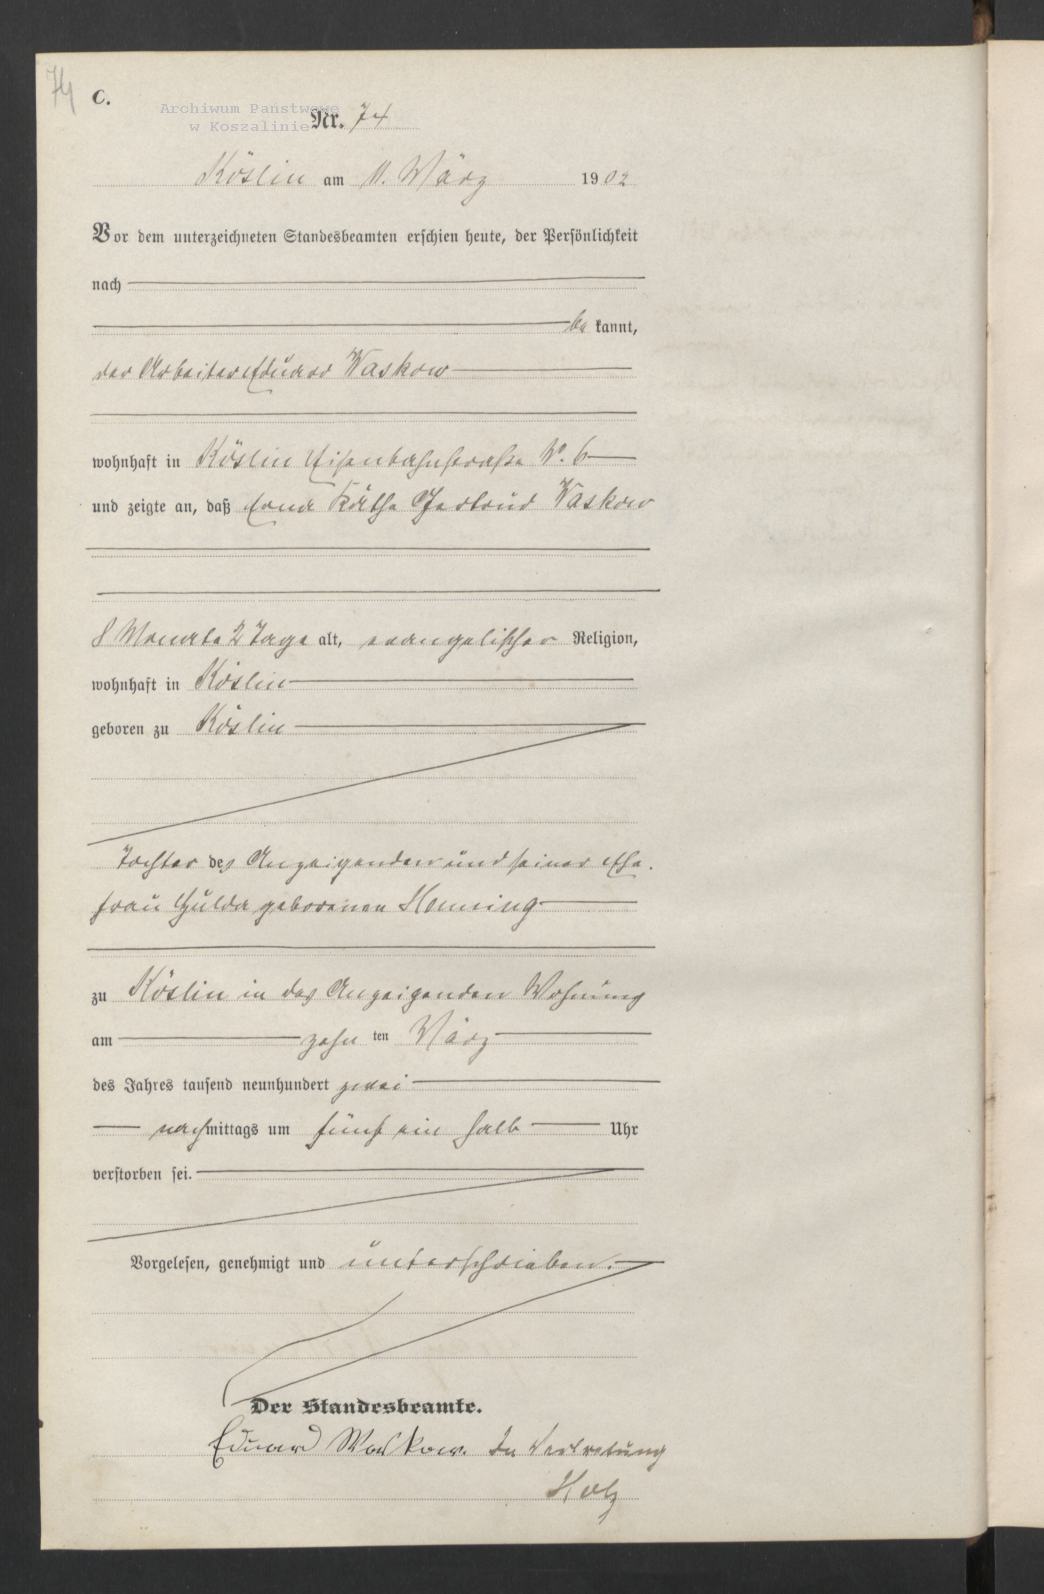 74
C.
Archiwum Państwowe
w Koszalinie
Nr. 74
Köslin am 11. März 1902
Vor dem unterzeichneten Standesbeamten erschien heute, der Persönlichkeit
nach
be kannt,
der Arbeiter Eduard Waskow
wohnhaft in Köslin Eisenbahnstraße No. 6
und zeigte an, daß Erna Käthe Gertrud Waskow
8 Monate 2 Tage alt, evangelischer Religion,
wohnhaft in Köslin
geboren zu Köslin
Tochter des Anzeigenden und seiner Ehe-
frau Hulda geborenen Henning
zu Köslin in des Anzeigenden Wohnung
am zehn ten März
des Jahres tausend neunhundert zwei
nachmittags um fünf ein halb Uhr
verstorben sei.
Vorgelesen, genehmigt und unterschrieben.
Der Standesbeamte.
Eduard Waskow. In Vertretung
Holz